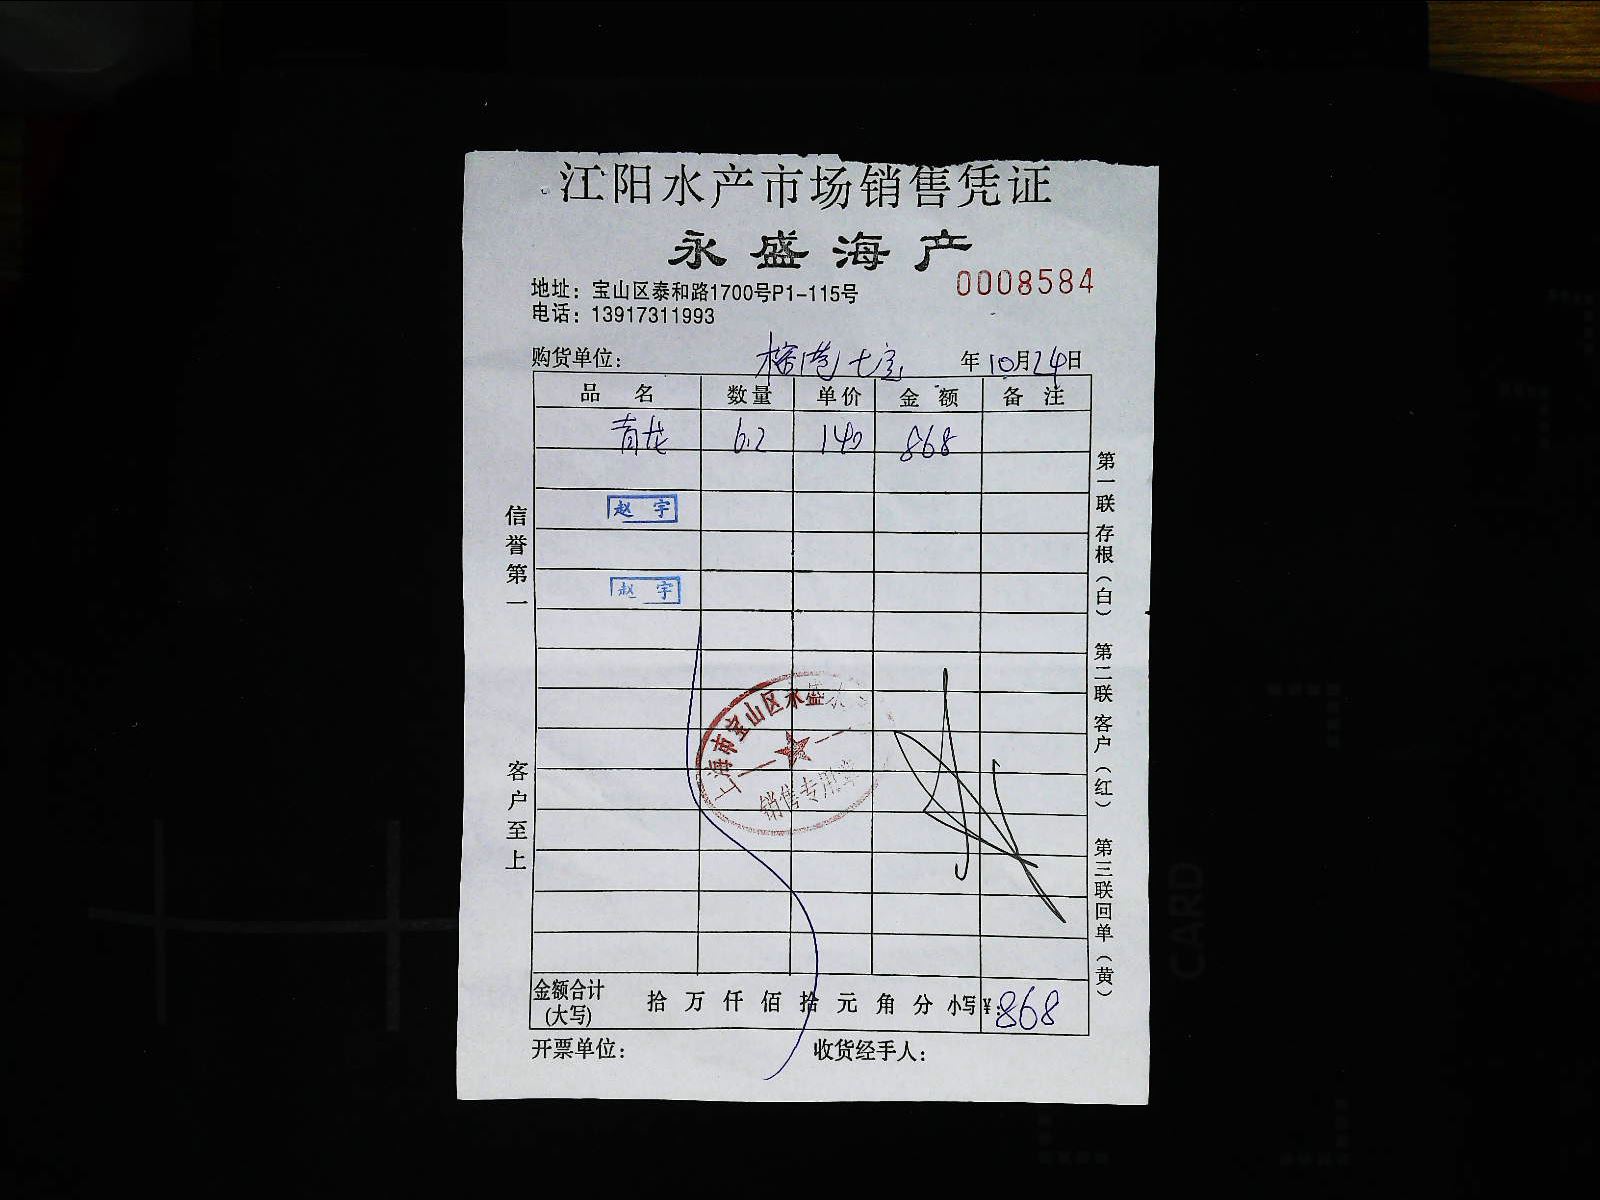 江阳水产市场销售凭证
永盛海产
0008584
地址：宝山区泰和路1700号P1-115号
电话：13917311993
购货单位： 七宝 年10月24日
品 名 数量 单价 金 额 备 注
青龙 6.2 140 868
赵 宇
赵 宇
信誉第一
客户至上
上海市宝山区永盛
销售专用章
第一联 存根（白） 第二联 客户（红） 第三联 回单（黄）
金额合计(大写) 拾 万 仟 佰 拾 元 角 分 小写 ¥:868
开票单位： 收货经手人：
CARD